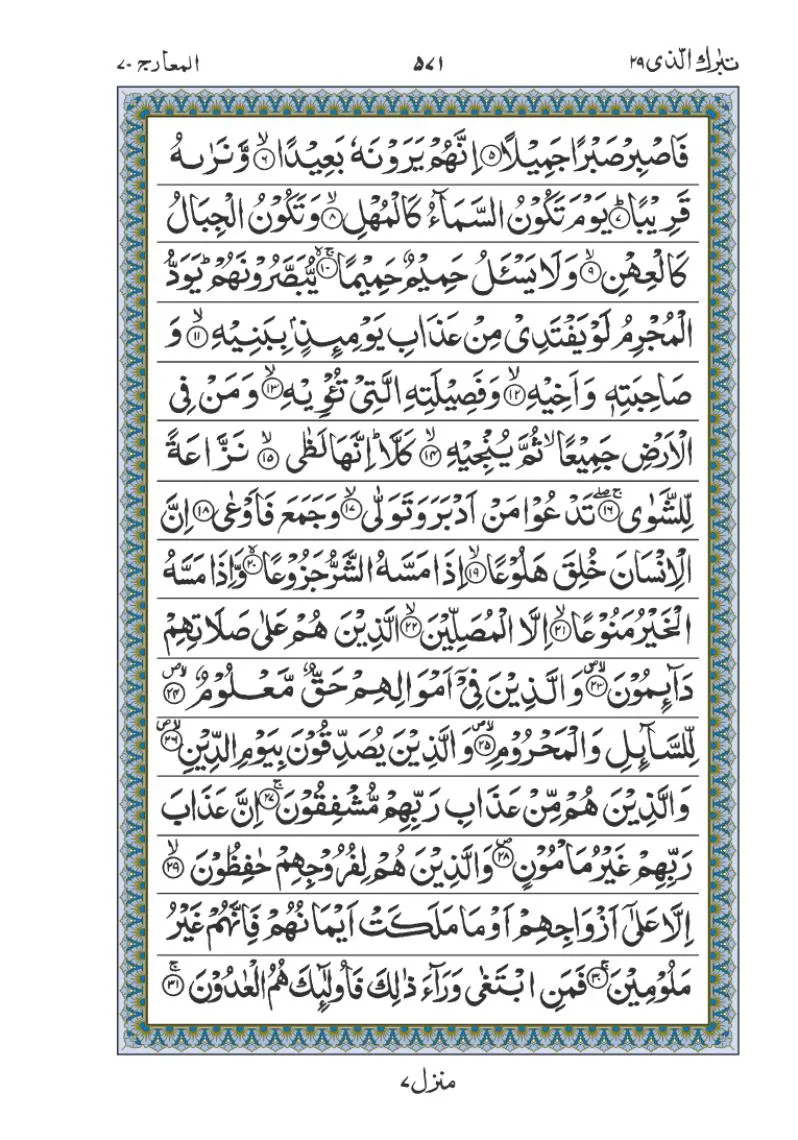 تبٰرك الّذی ۲۹
۵۷۱
المعارج ۷۰
فَاصْبِرْ صَبْرًا جَمِیْلًا ۝۵ اِنَّهُمْ یَرَوْنَهٗ بَعِیْدًا ۙ۝۶ وَّ نَرٰىهُ
قَرِیْبًا ؕ۝۷ یَوْمَ تَكُوْنُ السَّمَآءُ كَالْمُهْلِ ۙ۝۸ وَ تَكُوْنُ الْجِبَالُ
كَالْعِهْنِ ۙ۝۹ وَ لَا یَسْـَٔلُ حَمِیْمٌ حَمِیْمًا ۚۖ۝۱۰ یُّبَصَّرُوْنَهُمْ ؕ یَوَدُّ
الْمُجْرِمُ لَوْ یَفْتَدِیْ مِنْ عَذَابِ یَوْمِىِٕذٍۭ بِبَنِیْهِ ۙ۝۱۱ وَ
صَاحِبَتِهٖ وَ اَخِیْهِ ۙ۝۱۲ وَ فَصِیْلَتِهِ الَّتِیْ تُـْٔوِیْهِ ۙ۝۱۳ وَ مَنْ فِی
الْاَرْضِ جَمِیْعًا ۙ ثُمَّ یُنْجِیْهِ ۙ۝۱۴ كَلَّا ؕ اِنَّهَا لَظٰی ۙ۝۱۵ نَزَّاعَةً
لِّلشَّوٰی ۚۖ۝۱۶ تَدْعُوْا مَنْ اَدْبَرَ وَ تَوَلّٰی ۙ۝۱۷ وَ جَمَعَ فَاَوْعٰی ۝۱۸ اِنَّ
الْاِنْسَانَ خُلِقَ هَلُوْعًا ۙ۝۱۹ اِذَا مَسَّهُ الشَّرُّ جَزُوْعًا ۙ۝۲۰ وَّ اِذَا مَسَّهُ
الْخَیْرُ مَنُوْعًا ۙ۝۲۱ اِلَّا الْمُصَلِّیْنَ ۙ۝۲۲ الَّذِیْنَ هُمْ عَلٰی صَلَاتِهِمْ
دَآىِٕمُوْنَ ۪ۙ۝۲۳ وَ الَّذِیْنَ فِیْۤ اَمْوَالِهِمْ حَقٌّ مَّعْلُوْمٌ ۪ۙ۝۲۴
لِّلسَّآىِٕلِ وَ الْمَحْرُوْمِ ۪ۙ۝۲۵ وَ الَّذِیْنَ یُصَدِّقُوْنَ بِیَوْمِ الدِّیْنِ ۪ۙ۝۲۶
وَ الَّذِیْنَ هُمْ مِّنْ عَذَابِ رَبِّهِمْ مُّشْفِقُوْنَ ۚ۝۲۷ اِنَّ عَذَابَ
رَبِّهِمْ غَیْرُ مَاْمُوْنٍ ۪۝۲۸ وَ الَّذِیْنَ هُمْ لِفُرُوْجِهِمْ حٰفِظُوْنَ ۙ۝۲۹
اِلَّا عَلٰۤی اَزْوَاجِهِمْ اَوْ مَا مَلَكَتْ اَیْمَانُهُمْ فَاِنَّهُمْ غَیْرُ
مَلُوْمِیْنَ ۚ۝۳۰ فَمَنِ ابْتَغٰی وَرَآءَ ذٰلِكَ فَاُولٰٓىِٕكَ هُمُ الْعٰدُوْنَ ۚ۝۳۱
منزل ۷